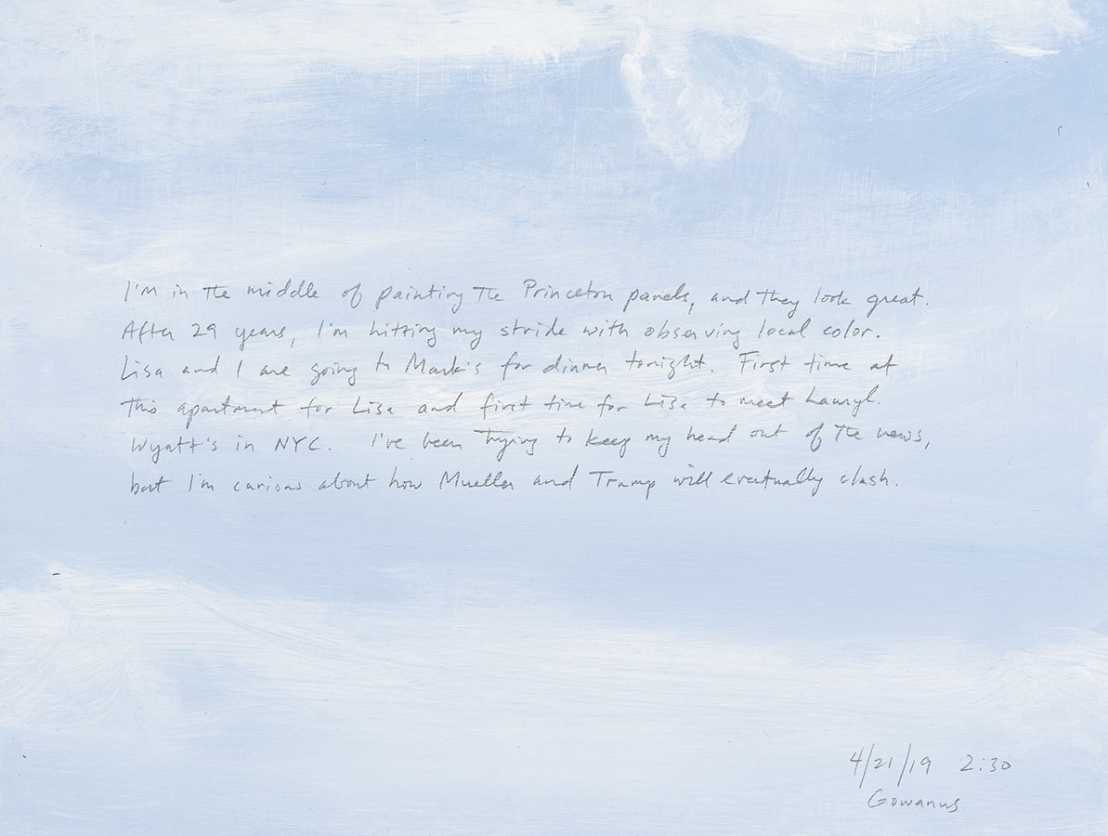 I'm in the middle of painting the Princeton panels, and they look great.
After 29 years, I'm hitting my stride with observing local color.
Lisa and I are going to Mark's for dinner tonight. First time at
this apartment for Lisa and first time for Lisa to meet
Wyatt's in NYC. I've been trying to keep my head out of the news,
but I'm curious about how Mueller and Trump will eventually clash.
4/21/19 2:30
Gowanus